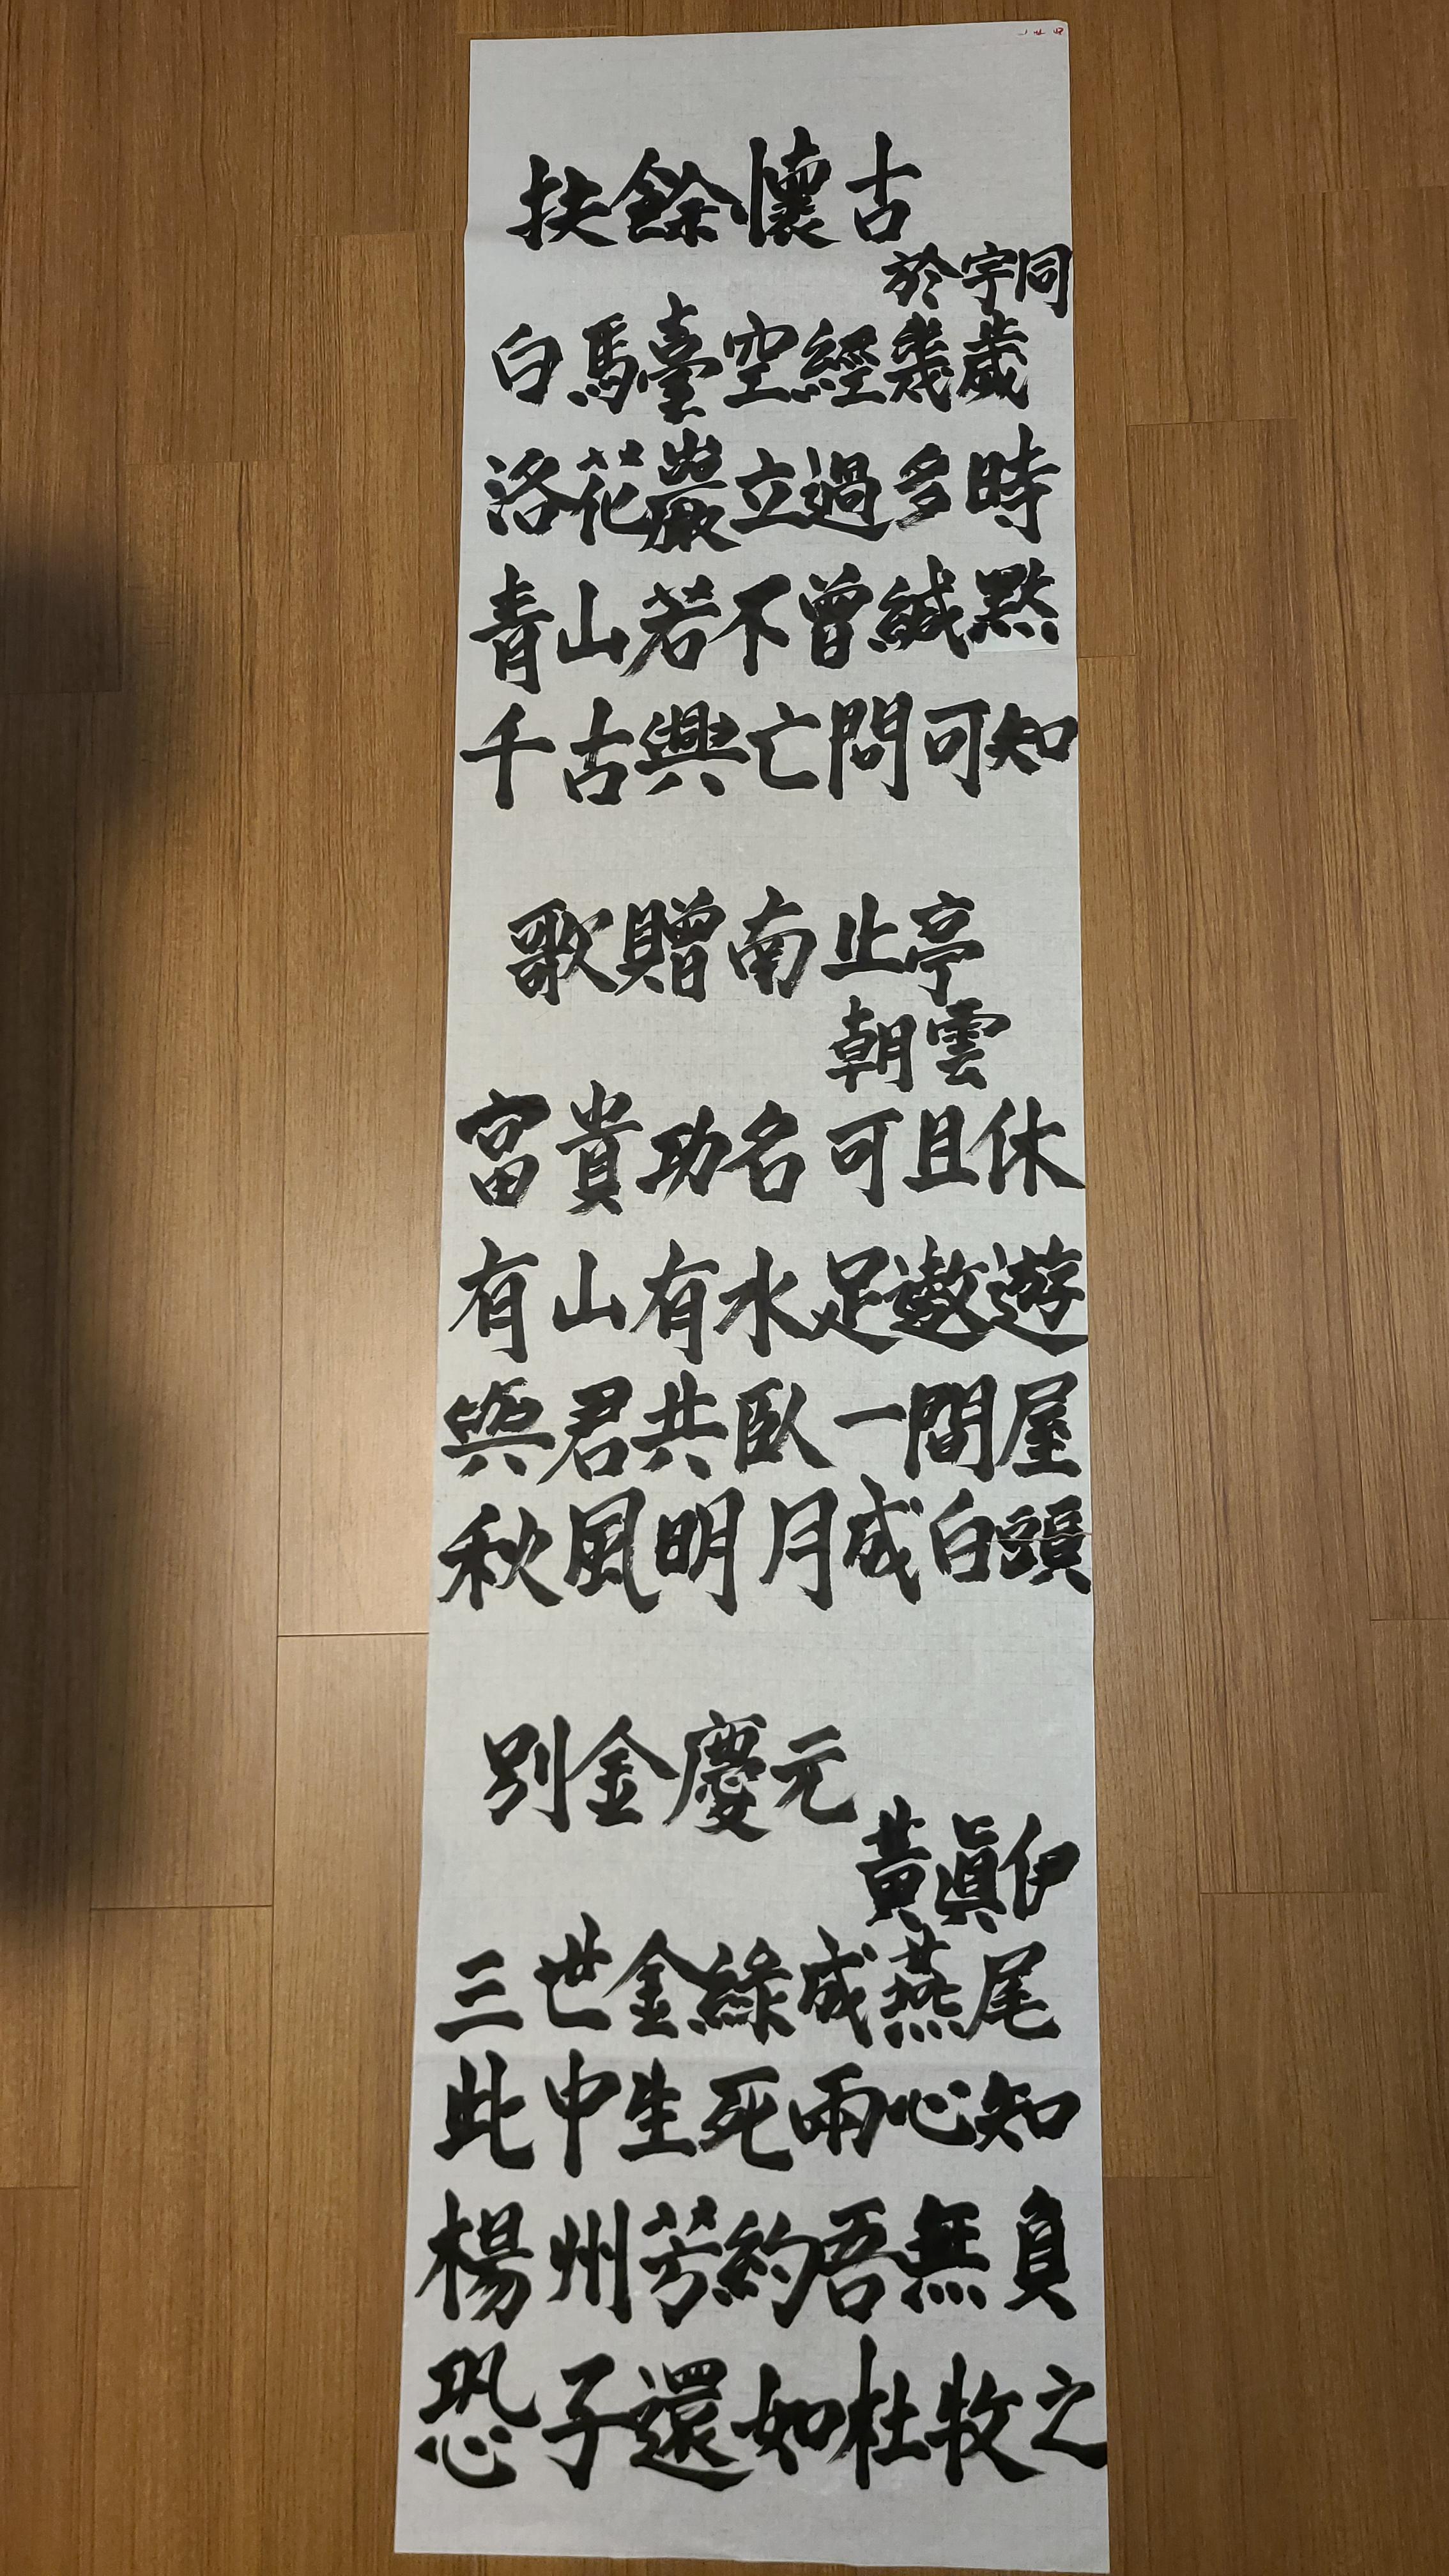 扶餘懷古
於宇同
白馬臺空經幾歲
洛花巖立過多時
青山若不曾緘黙
千古興亡問可知
歌贈南止亭
朝雲
富貴功名可且休
有山有水足遨遊
與君共臥一間屋
秋風明月成白頭
別金慶元
黃眞伊
三世金緣成燕尾
此中生死兩心知
楊州芳約吾無負
恐子還如杜牧之